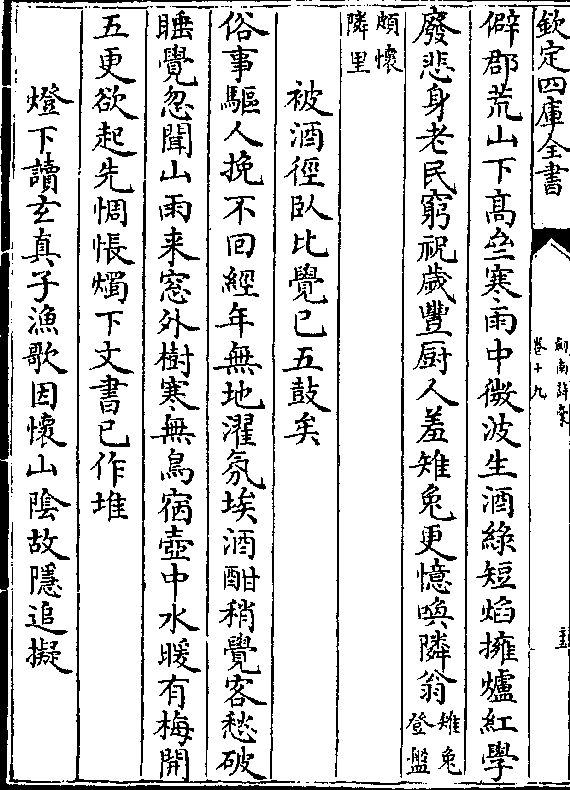 欽定四庫全書
劍南詩稾
卷十九
僻郡荒山下高壘寒雨中微波生酒綠短焰擁爐紅學
廢悲身老民窮祝歲豐厨人羞雉兔更憶喚隣翁雉兔
登盤
頗懷
隣里
被酒徑臥比覺已五鼓矣
俗事驅人挽不回經年無地濯氛埃酒酣稍覺客愁破
睡覺忽聞山雨来窓外樹寒無鳥宿壺中水暖有梅開
五更欲起先惆悵燭下文書已作堆
燈下讀玄真子漁歌因懷山隂故隱追擬